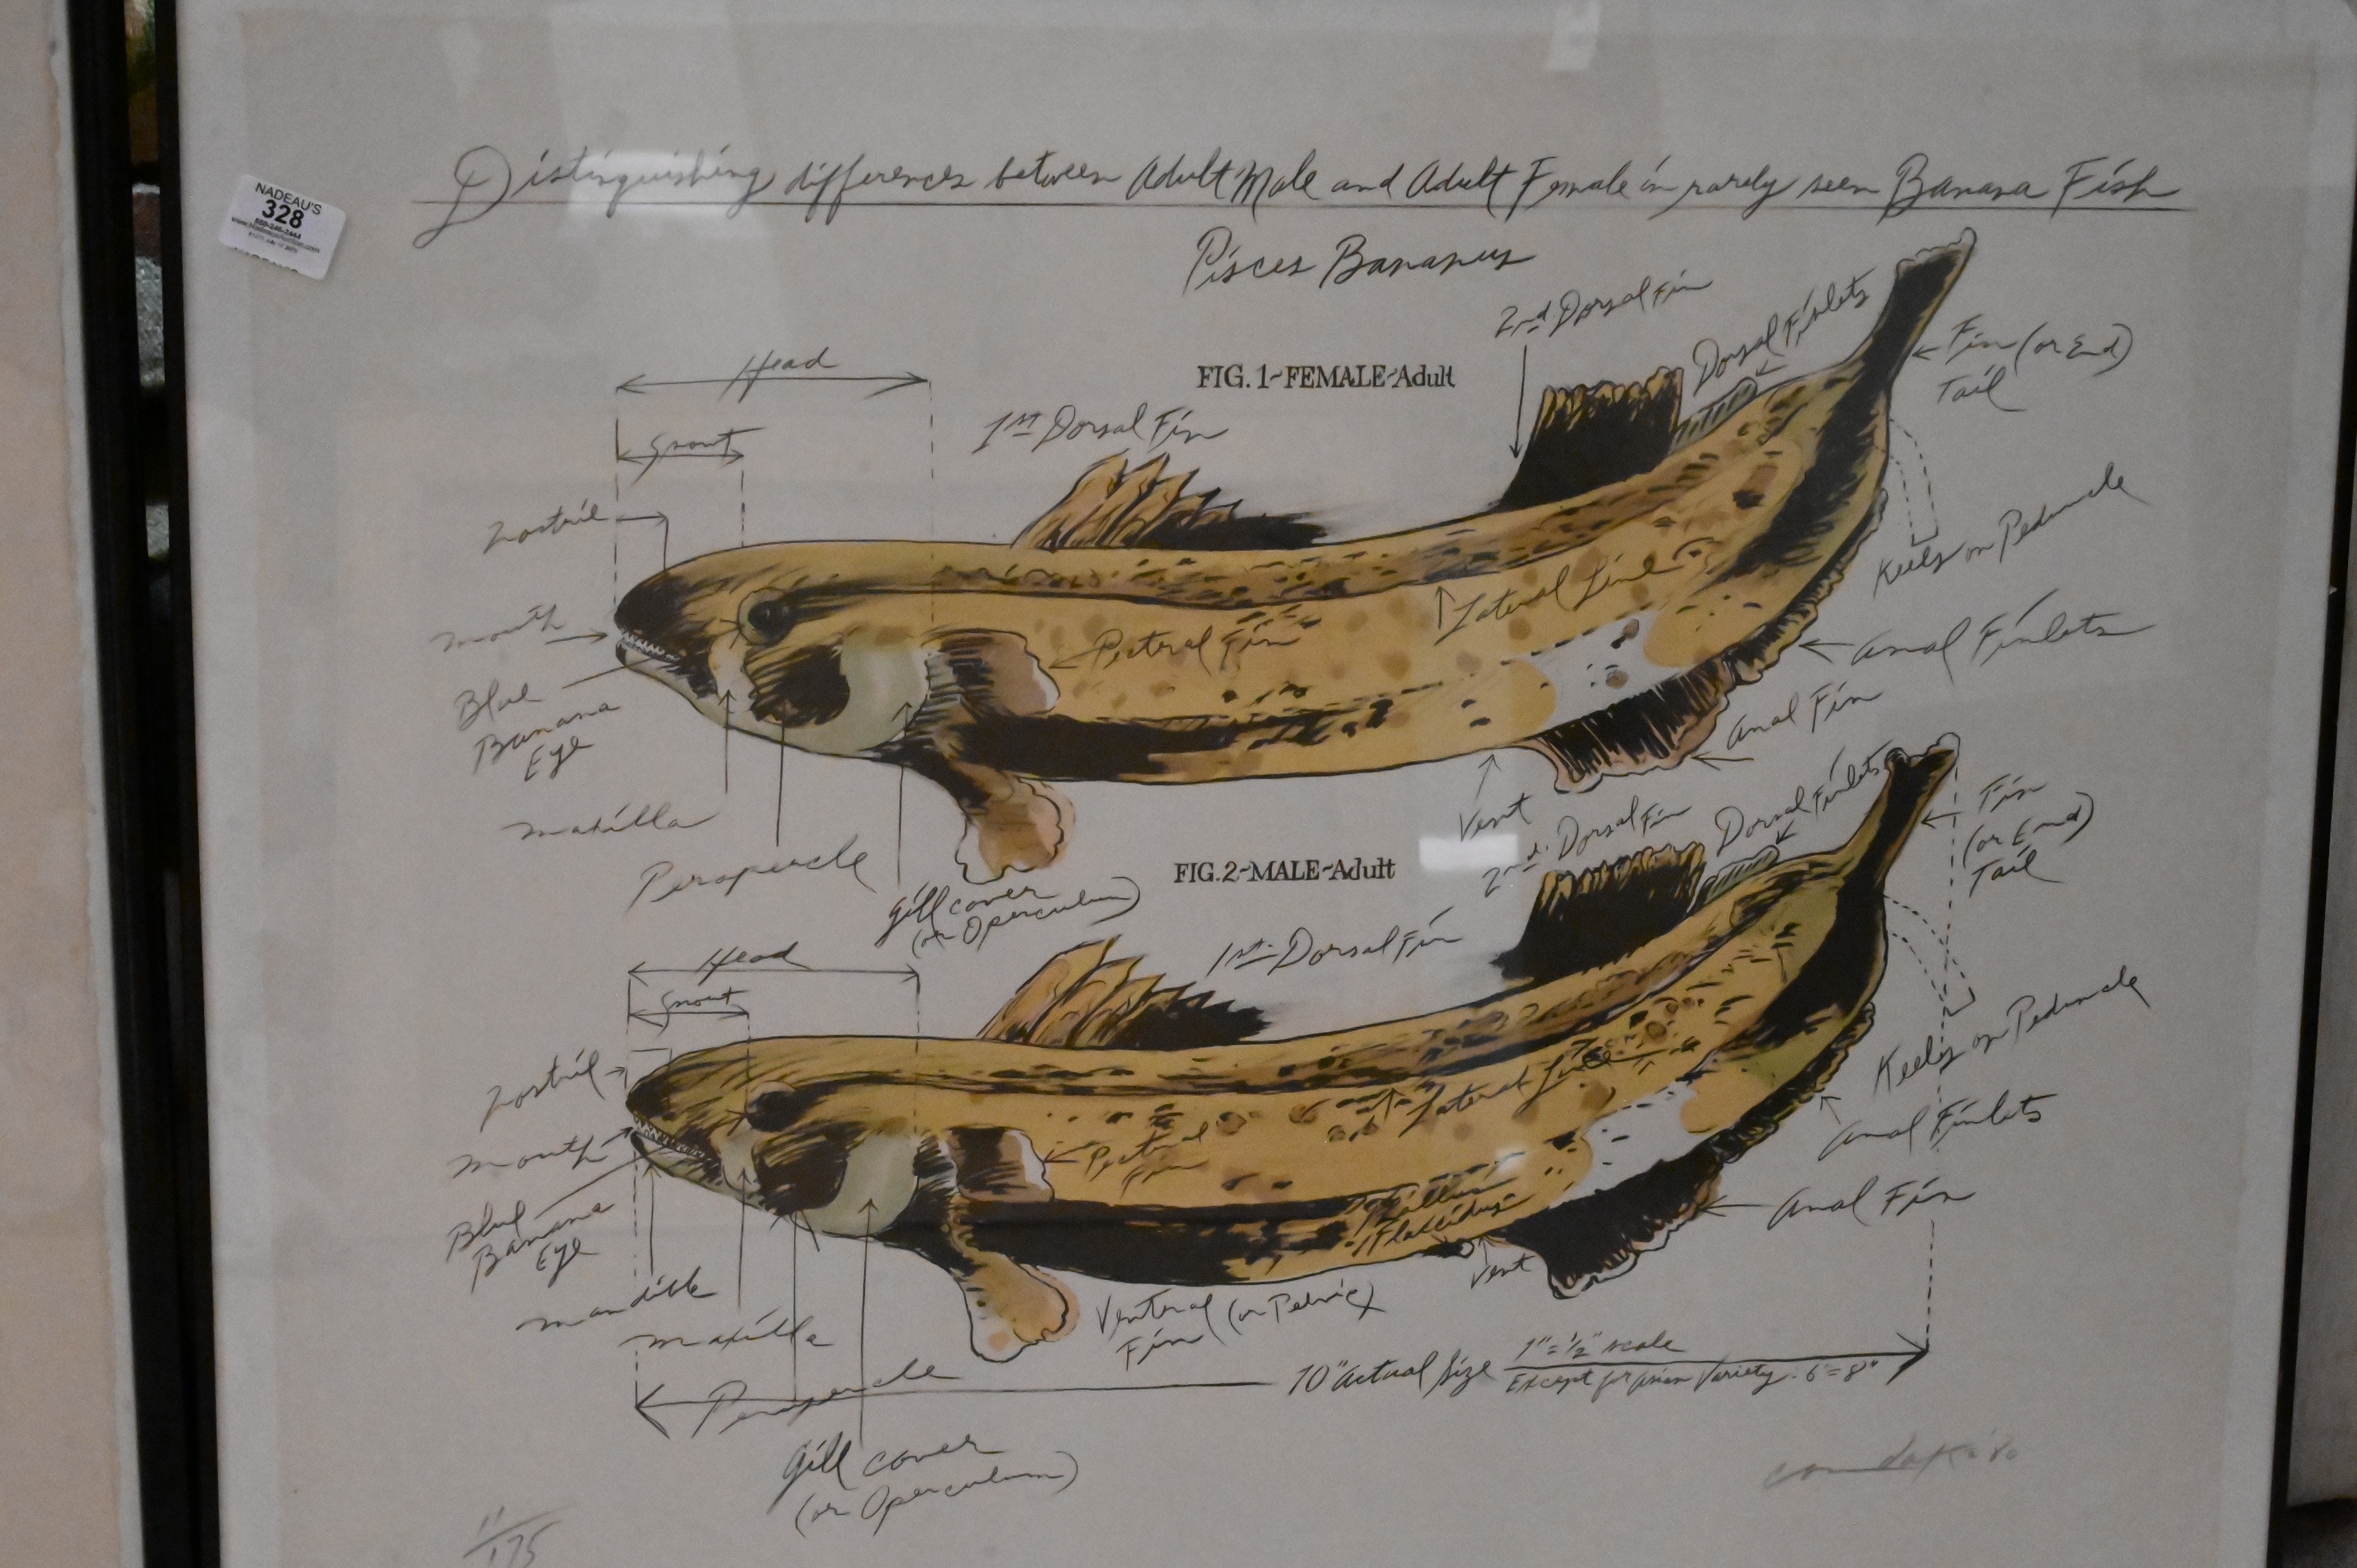 NADEAU'S
328
Distinguishing differences between Adult Male and Adult Female in rarely seen Banana Fish
Pisces Bananus
2nd Dorsal Fin
Dorsal Finlets
Fin (or End)
Tail
Head
FIG. 1~FEMALE~Adult
1st Dorsal Fin
Snout
Nostril
Keels on Peduncle
Lateral Line
mouth
Pectoral Fin
Anal Finlets
Blue
Banana
Eye
Anal Fin
Vent
maxilla
Peropercle
gill cover
(or Operculum)
2nd Dorsal Fin
Dorsal Finlets
Fin
(or End)
Tail
FIG. 2~MALE~Adult
1st Dorsal Fin
Head
Snout
Nostril
Keels on Peduncle
Lateral Line
mouth
Pectoral
Fin
Anal Finlets
Blue
Banana
Eye
Anal Fin
Flaccidus
Vent
mandible
maxilla
Ventral (or Pelvic)
Fin
Peropercle
10" Actual Size
1"=1/2" scale
Except for Asian Variety: 6"=8"
gill cover
(or Operculum)
11/175